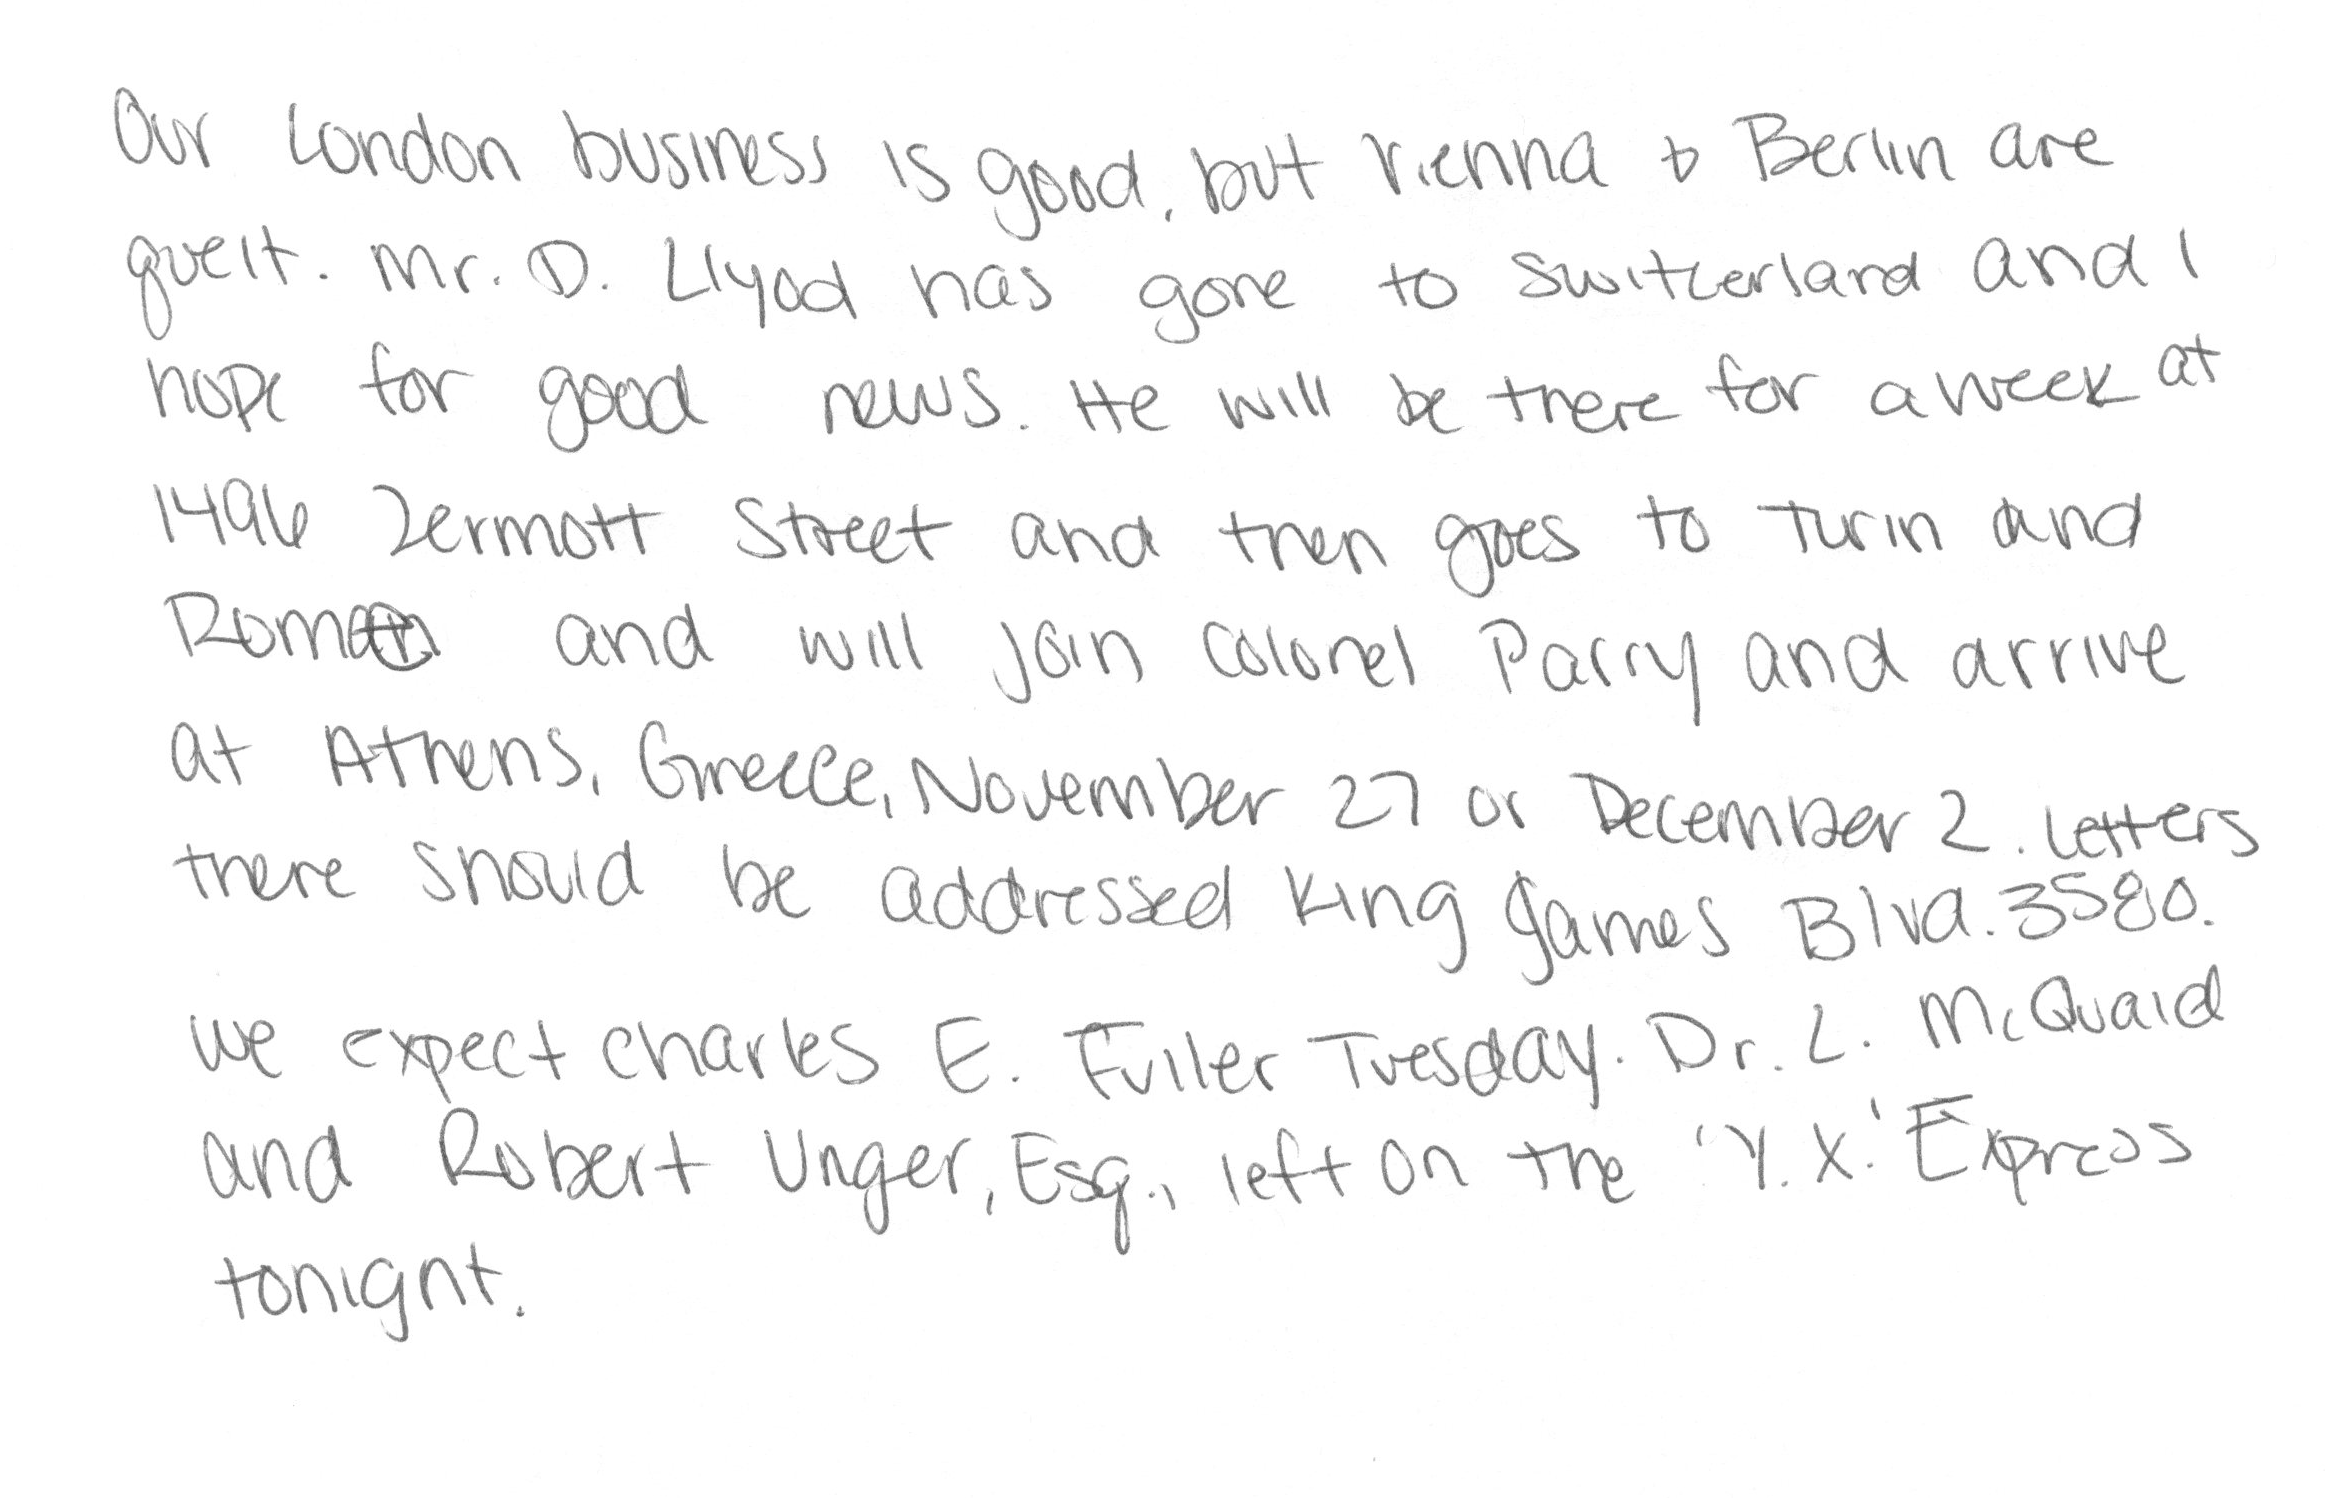 Our London business is good, but Vienna & Berlin are
queit. Mr. D. Llyod has gone to Switzerland and I
hope for good news. He will be there for a week at
1496 Zermott Street and then goes to Turin and
Rome and will join Colonel Parry and arrive
at Athens, Greece, November 27 or December 2. Letters
there should be addressed King James Blvd. 3580.
We expect Charles E. Fuller Tuesday. Dr. L. McQuaid
and Robert Unger, Esq., left on the 'Y.X.' Express
tonight.